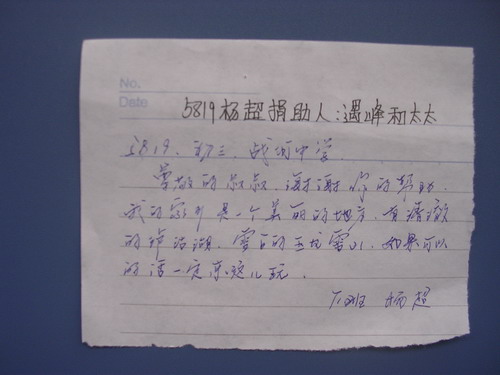 No.
Date
5819杨超捐助人:遇峰和太太
5819. 初三、战河中学.
尊敬的叔叔.谢谢你的帮助.
我的家乡是一个美丽的地方.有清澈
的泸沽湖.雪白的玉龙雪山.如果可以
的话一定来这儿玩.
杨超